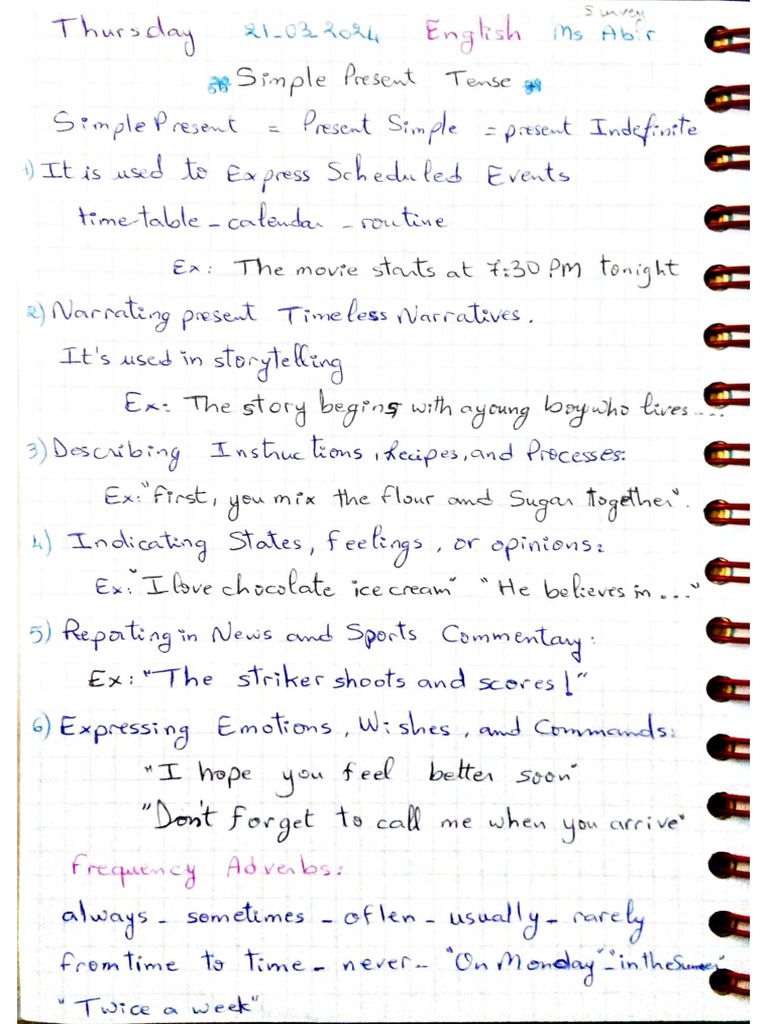 Survey
Thursday 21_03_2024 English Ms Abir
Simple Present Tense
Simple Present = Present Simple = present Indefinite
1) It is used to Express Scheduled Events
time-table - calendar - routine
Ex: The movie starts at 7:30 PM tonight
2) Narrating present Timeless Narratives.
It's used in storytelling
Ex: The story begins with a young boy who lives ....
3) Describing Instructions, Recipes, and Processes:
Ex: "First, you mix the flour and Sugar together".
4) Indicating States, feelings, or opinions:
Ex: "I love chocolate ice cream" "He believes in ..."
5) Reporting in News and Sports Commentary:
Ex: "The striker shoots and scores!"
6) Expressing Emotions, Wishes, and Commands:
"I hope you feel better soon"
"Don't forget to call me when you arrive"
Frequency Adverbs:
always - sometimes - often - usually - rarely
from time to time - never - "On Monday" - "in the Summer"
"Twice a week"